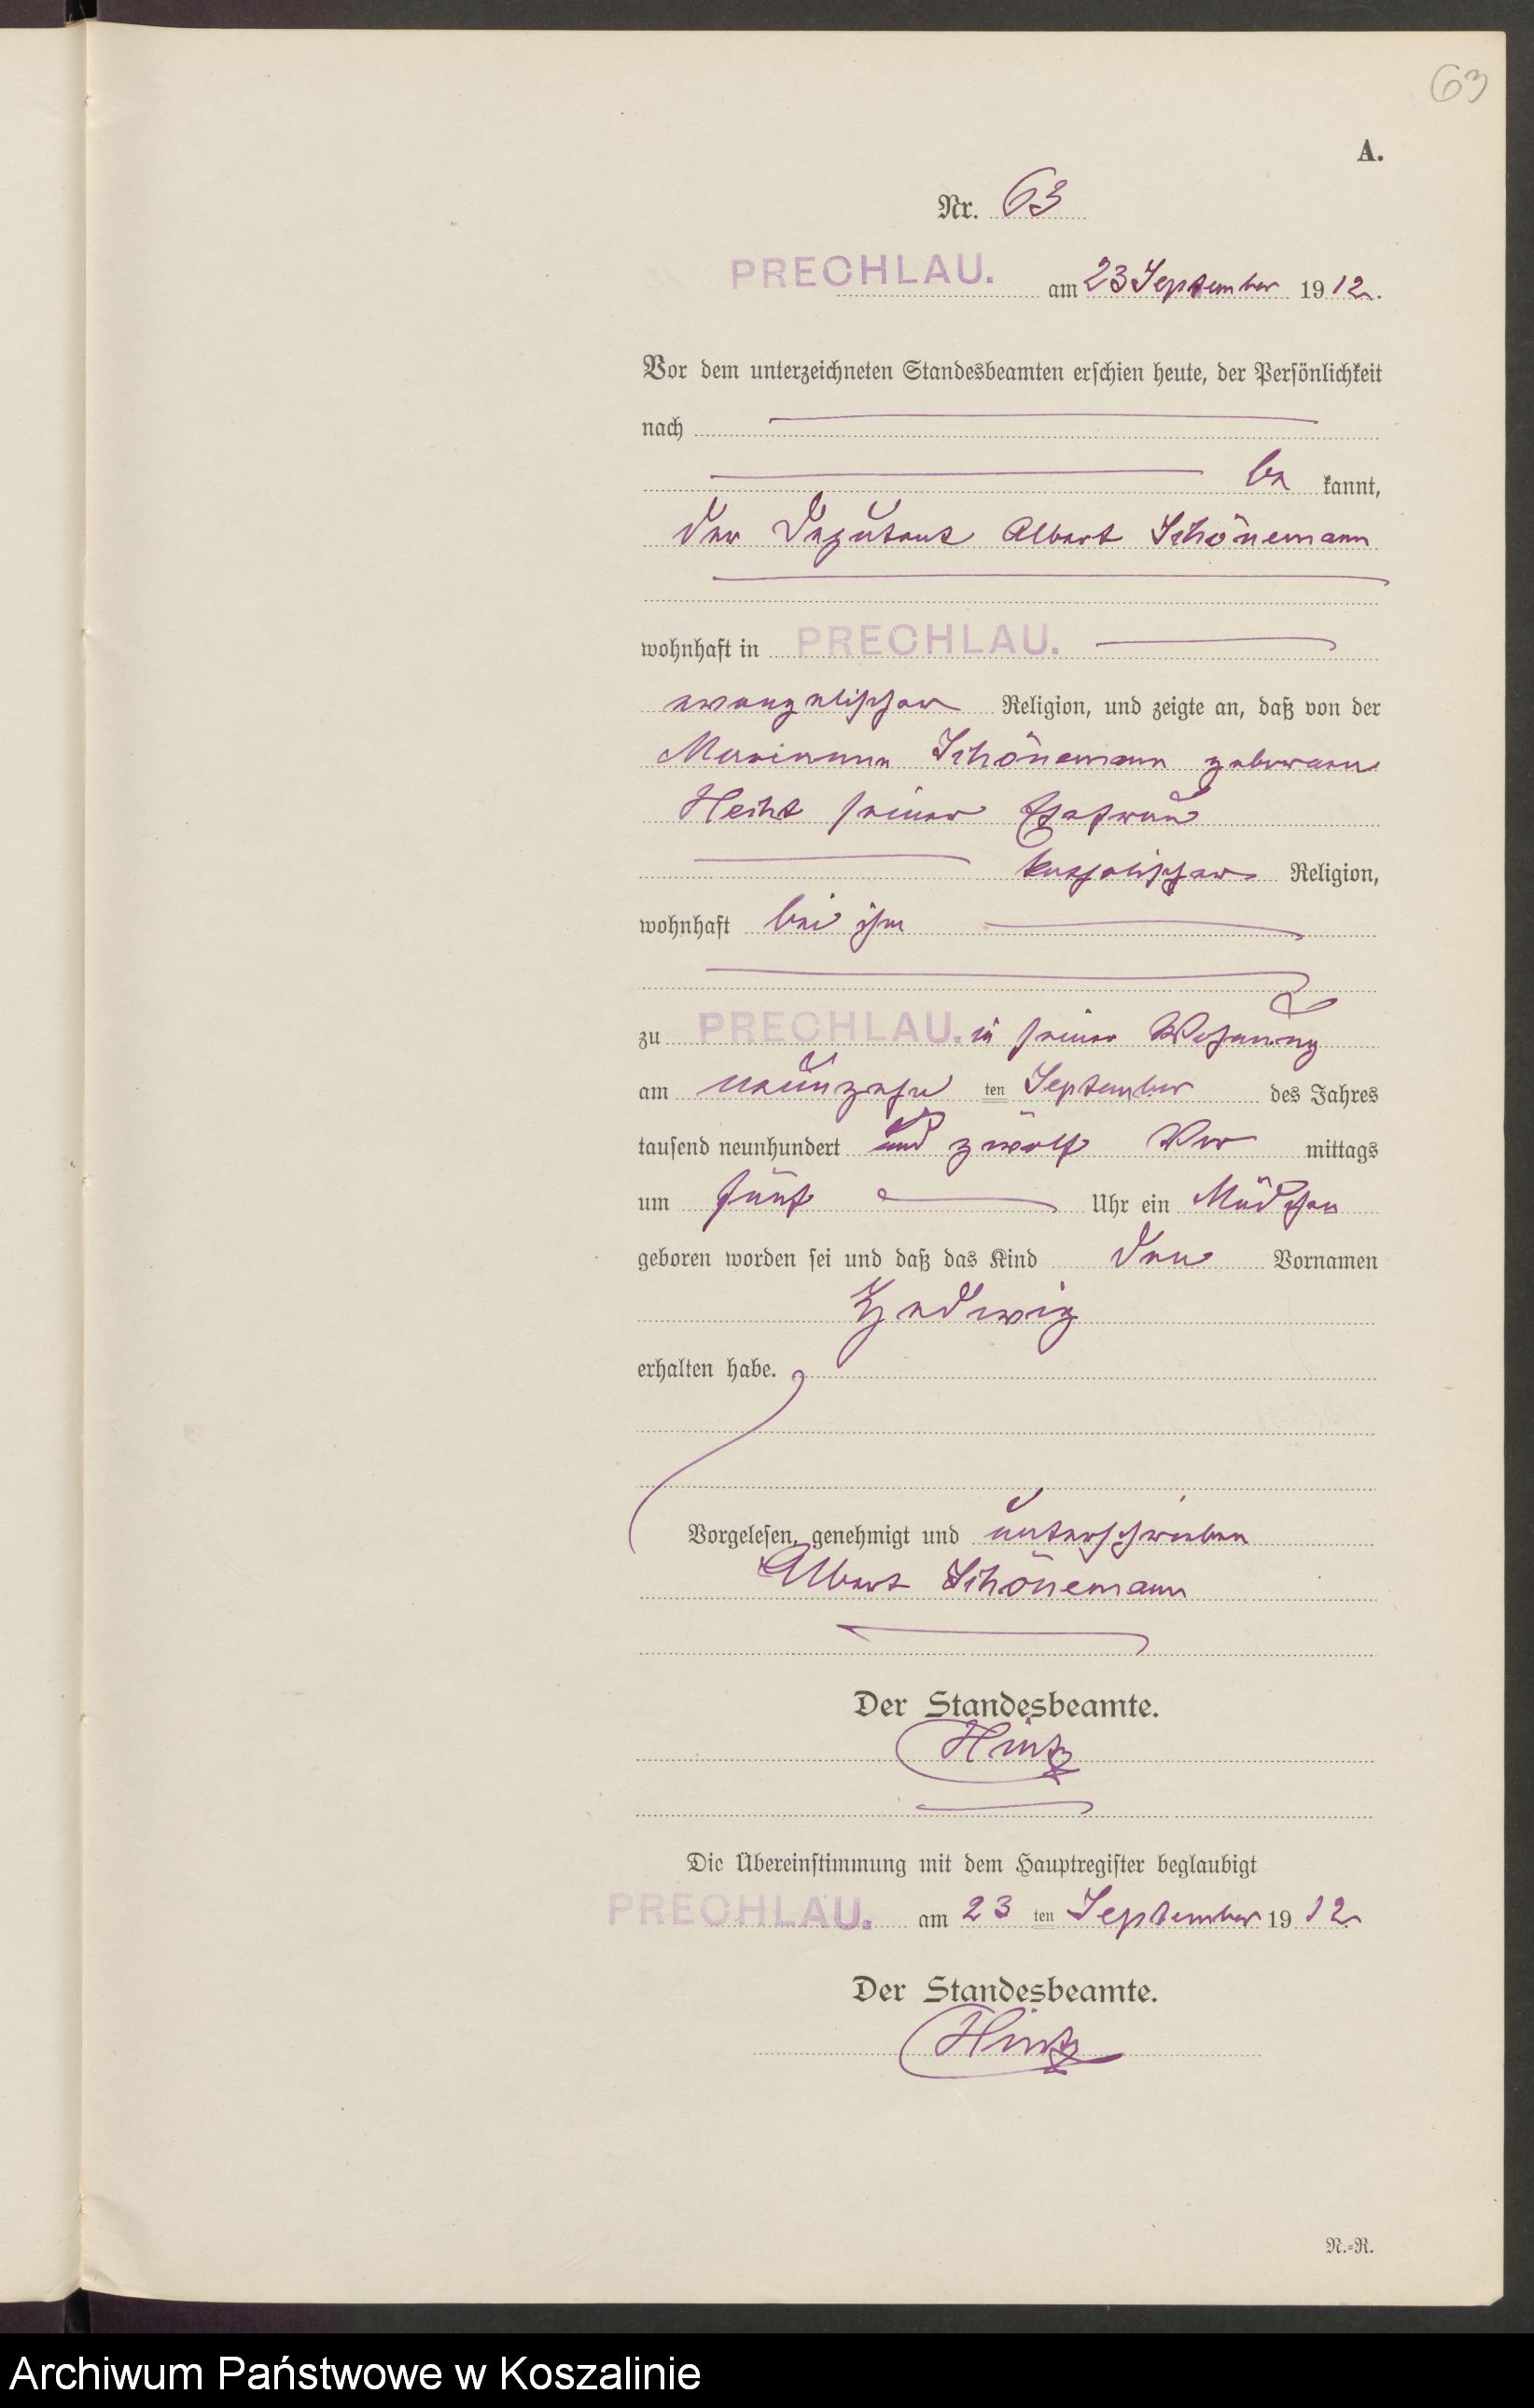 63
A.
Nr. 63
PRECHLAU. am 23 September 1912.
Vor dem unterzeichneten Standesbeamten erschien heute, der Persönlichkeit
nach
be kannt,
der Deputant Albert Schönemann
wohnhaft in PRECHLAU.
evangelischer Religion, und zeigte an, daß von der
Marianna Schönemann geborenen
Hecht seiner Ehefrau
katholischer Religion,
wohnhaft bei ihm
zu PRECHLAU. in seiner Wohnung
am neunzehn ten September des Jahres
tausend neunhundert und zwölf Vor mittags
um fünf Uhr ein Mädchen
geboren worden sei und daß das Kind den Vornamen
Hedwig
erhalten habe.
Vorgelesen, genehmigt und unterschrieben
Albert Schönemann
Der Standesbeamte.
Hintz
Die Übereinstimmung mit dem Hauptregister beglaubigt
PRECHLAU. am 23 ten September 1912
Der Standesbeamte.
Hintz
N.=R.
Archiwum Państwowe w Koszalinie